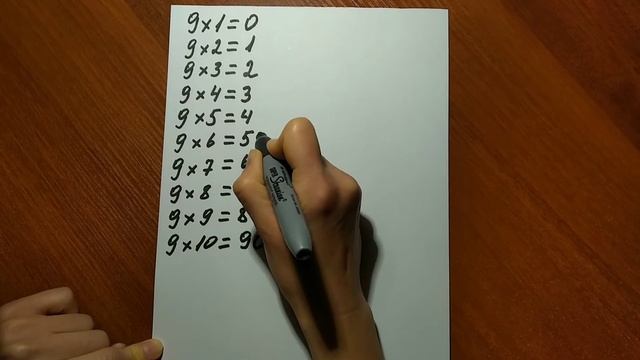 9×1=0
9×2=1
9×3=2
9×4=3
9×5=4
9×6=5
9×7=6
9×8=
9×9=8
9×10=90
Sharpie